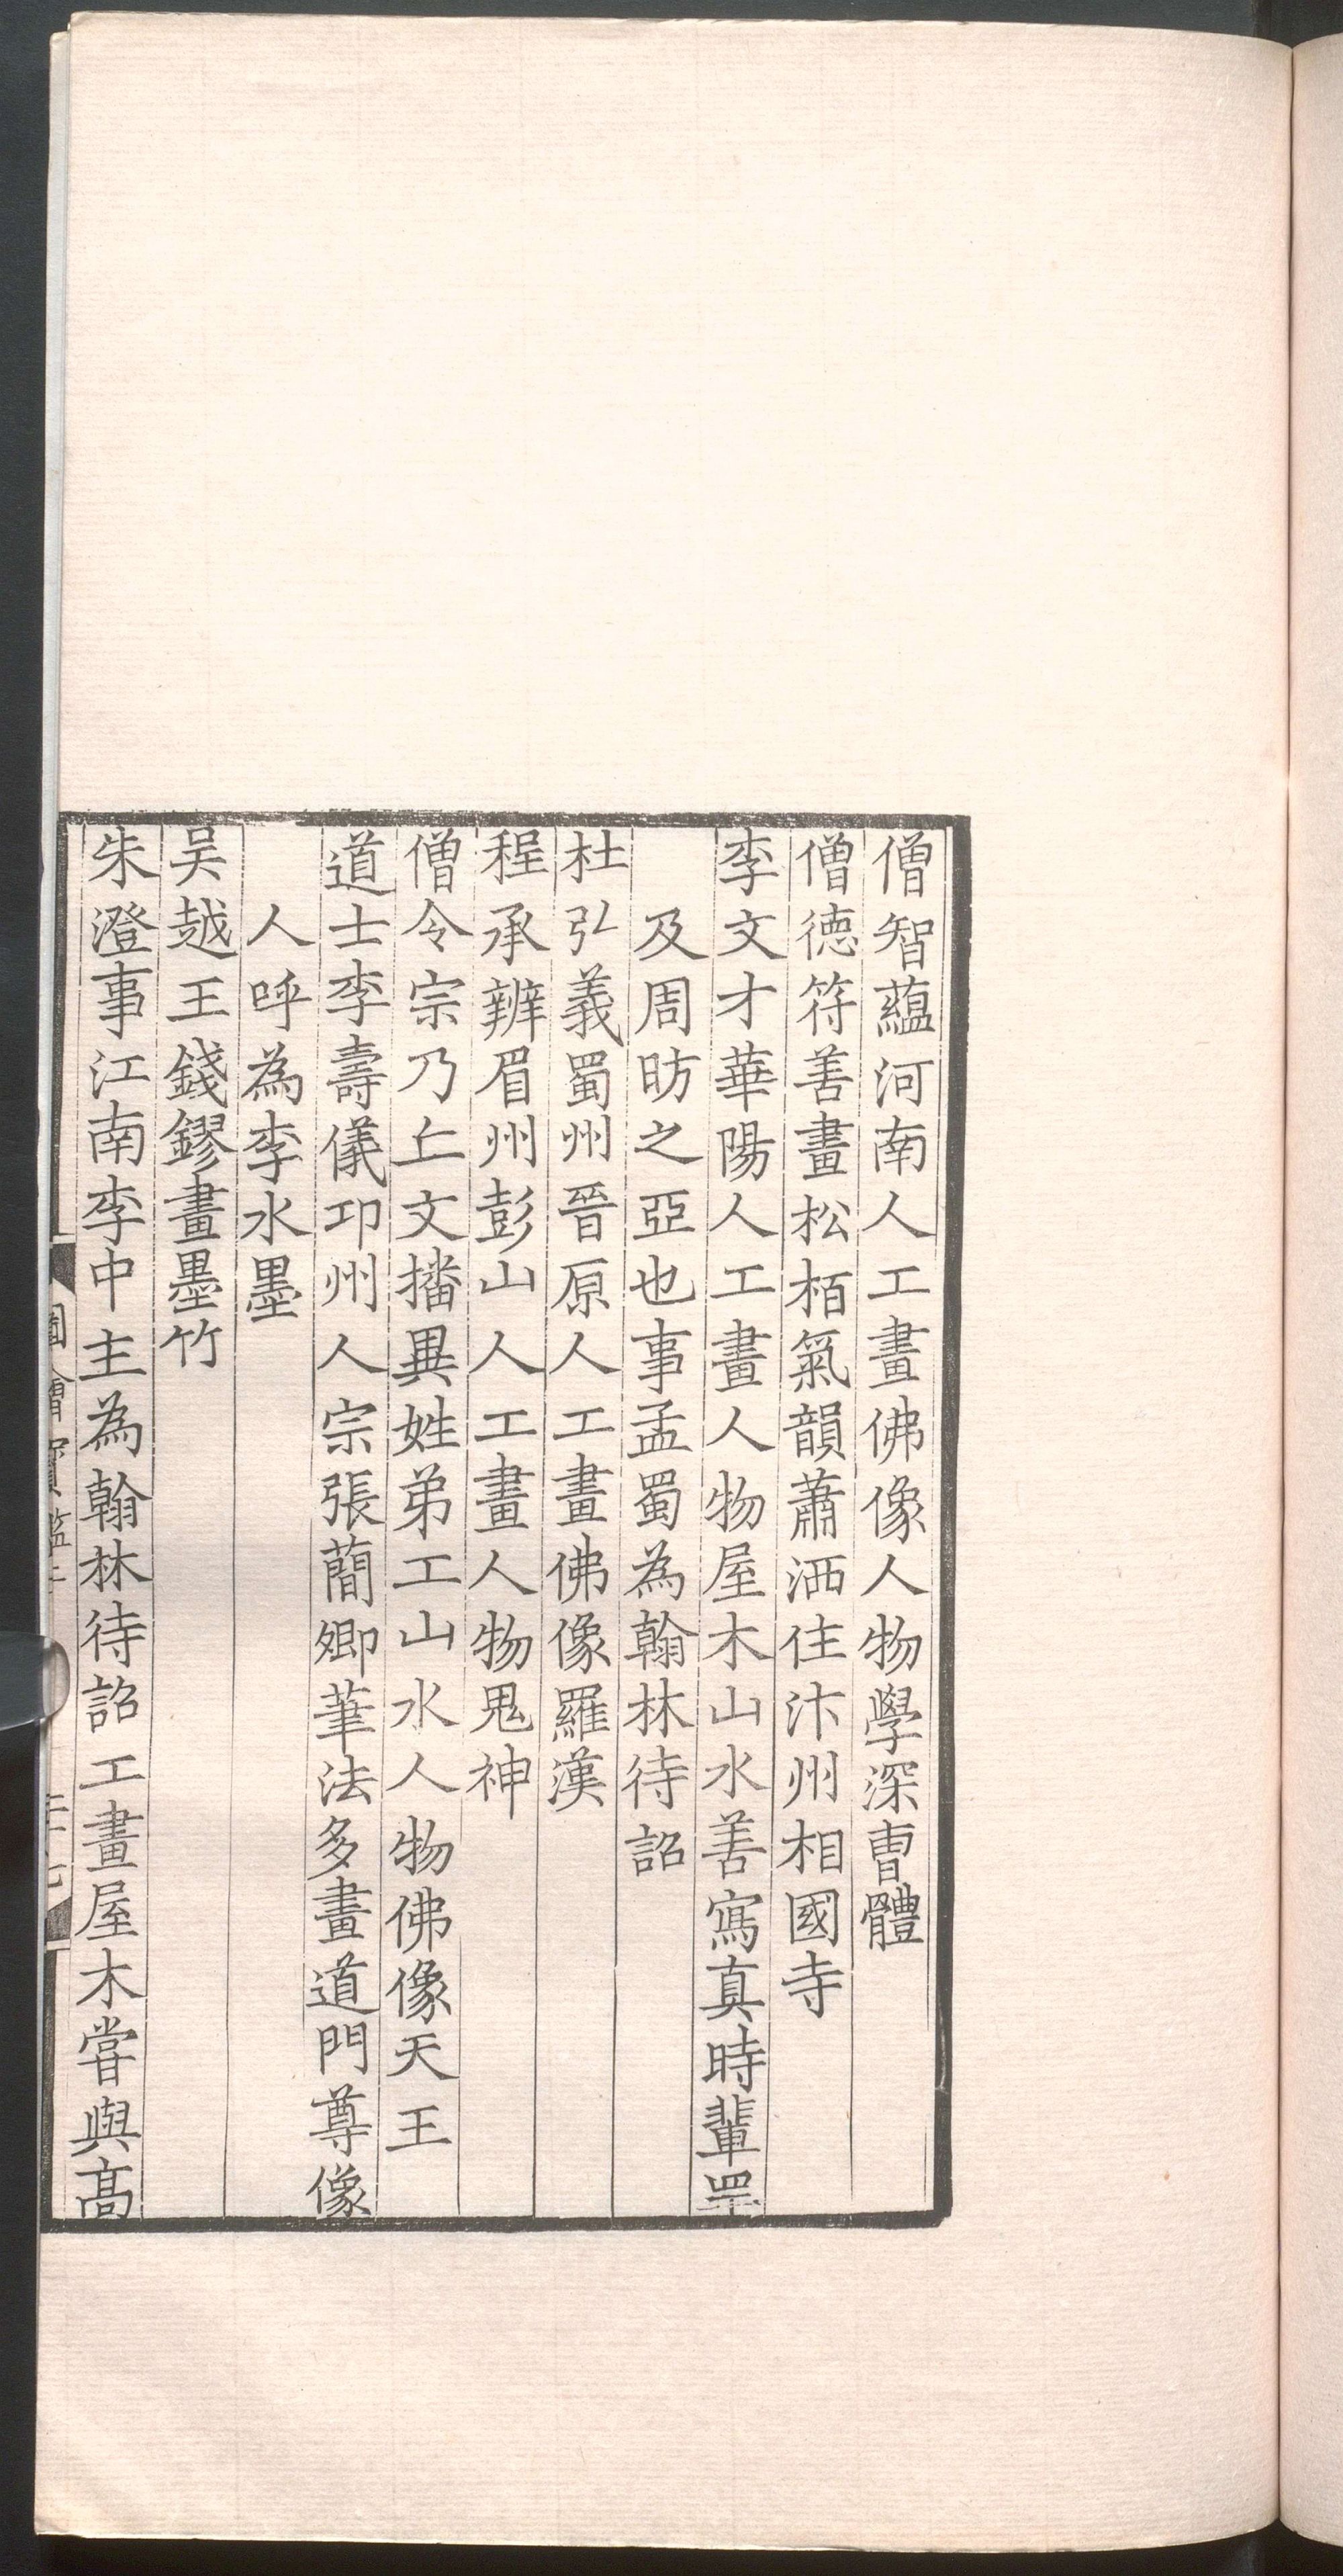 僧智蘊河南人工畫佛像人物學深曺體
僧德符善畫松栢氣韻蕭洒住汴州相國寺
李文才華陽人工畫人物屋木山水善寫真時輩罕
及周昉之亞也事孟蜀為翰林待詔
杜弘義蜀州晉原人工畫佛像羅漢
程承辨眉州彭山人工畫人物鬼神
僧令宗乃丘文播異姓弟工山水人物佛像天王
道士李壽儀邛州人宗張蕑卿筆法多畫道門尊像
人呼為李水墨
吳越王錢鏐畫墨竹
朱澄事江南李中主為翰林待詔工畫屋木嘗與髙
圖繪寶鑑二